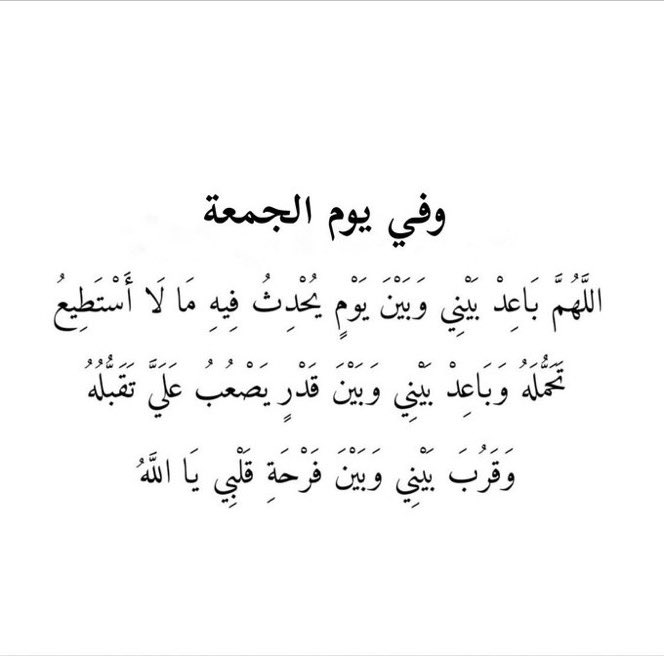 وفي يوم الجمعة
اللَّهُمَّ بَاعِدْ بَيْنِي وَبَيْنَ يَوْمٍ يُحْدِثُ فِيهِ مَا لَا أَسْتَطِيعُ
تَحَمُّلَهُ وَبَاعِدْ بَيْنِي وَبَيْنَ قَدْرٍ يَصْعُبُ عَلَيَّ تَقَبُّلُهُ
وَقَرُبَ بَيْنِي وَبَيْنَ فَرْحَةِ قَلْبِي يَا اللَّهُ